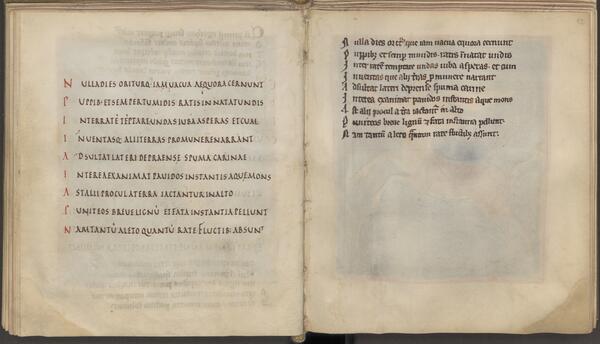 NULLA DIES ORITUR Q IAM VACUA AEQUORA CERNUNT
PUPPIB; ET SEMPER TUMIDIS RATIS INNATAT UNDIS
INTER RATE TEPTARE UNDAS IUBA ASPERAS ET CUM
INUENTASQ; ALII TERRAS PRO MUNERE NARRANT
ADSULTAT LATERI DEPRAENSE SPUMA CARINAE
INTEREA EXANIMAT PAUIDOS INSTANTIS AQUAE MONS
AST ALII PROCUL A TERRA IACTANTUR IN ALTO
PUNIT EOS BREUE LIGNU ET FATA INSTANTIA PELLUNT
NAM TANTU A LETO QUANTU RATE FLUCTIB: ABSUNT
Nulla dies oritr que iam uacua equora cernunt
Puppibz et semp tumidis ratis innatat undis
Inter rate temptare undas iuba asperas et cum
Inuentas que alii tras p munere narrant
Adsultat lateri deprense spuma carine
Interea exanimat pauidos instantis aque mons
Ast alii procul a tra iactant in alto
Punit eos breue lignu et fata instantia pellunt
Nam tantu a leto rate fluctibz assunt